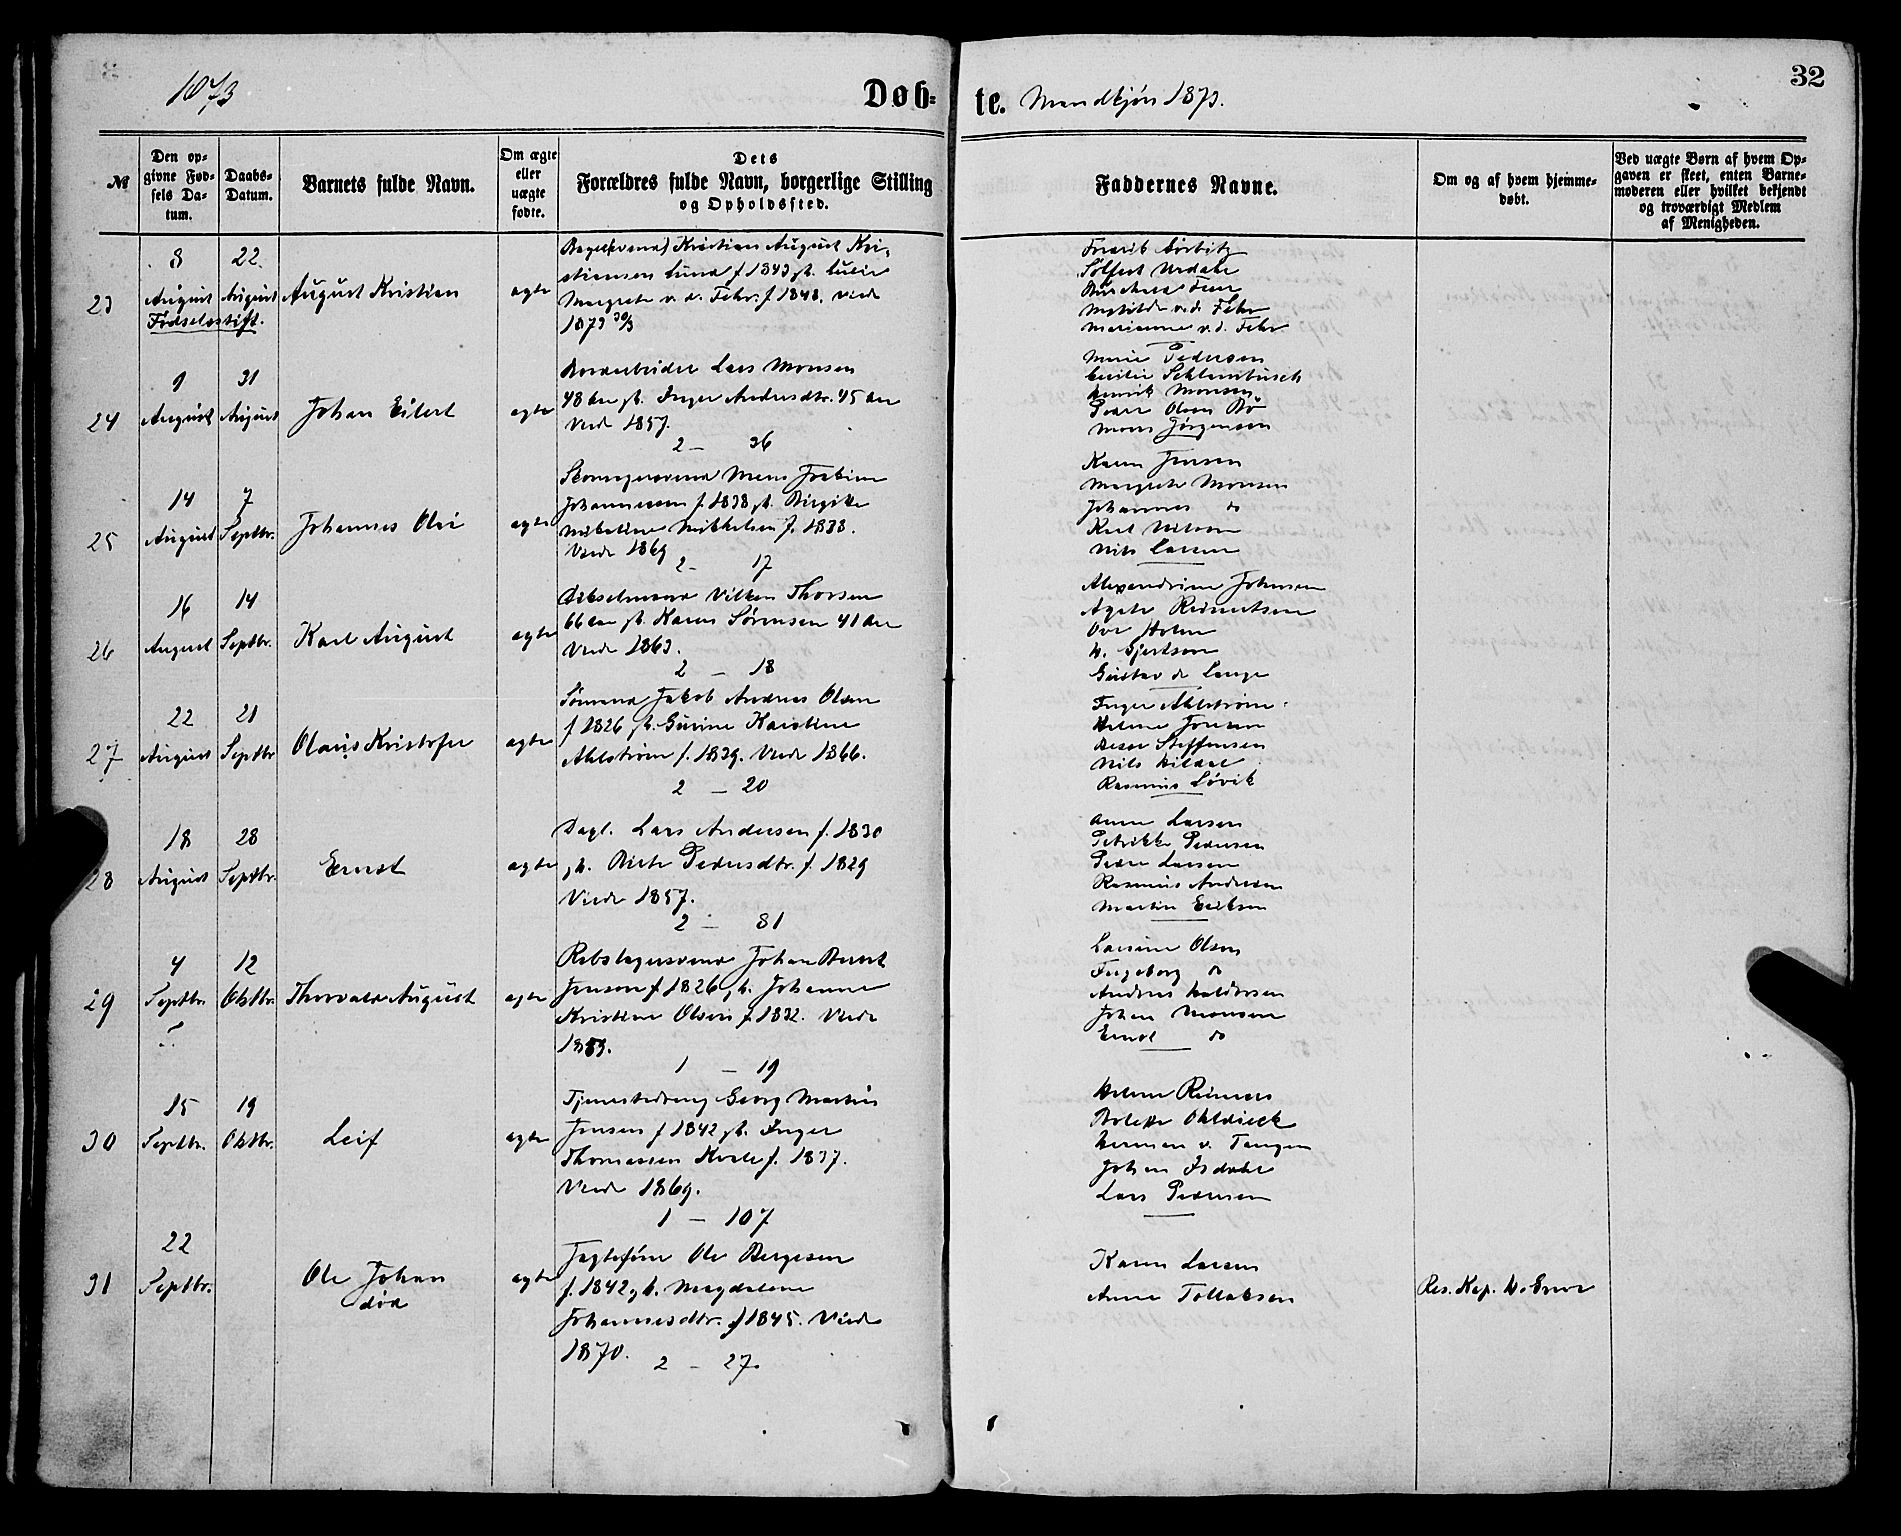 1873
Døb=
te. Mandkjøn 1873.
32
№
Den op=
givne Fød=
sels Da=
tum.
Daabs=
Datum.
Barnets fulde Navn.
Om ægte
eller
uægte
fødte.
Dets
Forældres fulde Navn, borgerlige Stilling
og Opholdssted.
Faddernes Navne.
Om og af hvem hjemme=
døbt.
Ved uægte Børn af hvem Op=
gaven er skeet, enten Barne=
moderen eller hvilket bekjendt
og troværdigt Medlem
af Menigheden.
23
8
August
22.
August
Fødselsstift.
August Kristian
ægte
Kristian August Kri=
stiansen Lund f 1843 gh. Lucie
Margrete v. d. Fehr. f 1848. Viede
1873 30/3
Mathilde v. d. Fehr
Marianne v. d. Fehr
24
9
August
31
August
Johan Eilert
ægte
Lars Monsen
48 Aar gh. Inger Andersdtr. 45 Aar
Viede 1857.
2 – 36
Marie Pedersen
Cecilie Schlambusch
Henrik Monsen
Peder Olsen Bø
Mons Jørgensen
25
14
August
7
Septbr.
Johannes Olai
ægte
Skomagersvend Mons
Johannessen f. 1838 gh. Birgitte
Mikkelsen f. 1838.
Viede 1869
2 – 17
Karen Jensen
Margrete Monsen
Johannes do
Karl Nilsen
Nils Larsen
26
16
August
14
Septbr.
Karl August
ægte
Vilken Thorsen
66 Aar gh. Karen Sørensen 41 Aar
Viede 1863.
2 – 18
Alexandrine Johnsen
Agate
Ove Holm
H. Gjertsen
Gustav de Lange
27
22
August
21
Septbr
Olaus Kristofer
ægte
Sømand Jakob Andreas Olsen
f 1826 gh. Gurine Karoline
Ahlstrøm f. 1839. Viede 1866.
2 – 20
Inger Ahlstrøm
Helene Jonsen
Steffensen
Nils
Rasmus Løvik
28
18
August
28
Septbr.
Ernst
ægte
Dagl. Lars Andersen f. 1830
gh. Birte Pedersdtr. f. 1829
Viede 1857.
2 – 81
Anne Larsen
Petrikke Pedersen
Peder Larsen
Rasmus Andersen
Martin Eriksen
29
4
Septbr.
12
Oktbr.
Thorvald August
ægte
Rebslagersvend Johan Berent
Jonson f 1826 gh. Johanne
Kristine Olsen f. 1832. Viede
1 – 19
Larsine Olsen
Ingeborg do
Andreas Haldorsen
Johan Monsen
Ernst do
30
15
Septbr.
19
Oktbr.
Leif
ægte
Tjenestedreng Georg Martin
Jensen f 1842 gh. Inger
Thomassen Kvale f. 1837.
Viede 1869.
1 – 107
Helene Reimers
Bolette Ohldieck
Herman v. Tangen
Johan Isdahl
Lars Pedersen
31
22
Septbr.
Ole Johan
død
ægte
Jagtefører Ole Børgesen
f. 1842 gh. Magdalene
Johannesdtr. f 1845. Viede
1870.
2 – 27.
Karen Larsen
Anne Tollaksen
Res. Kap.